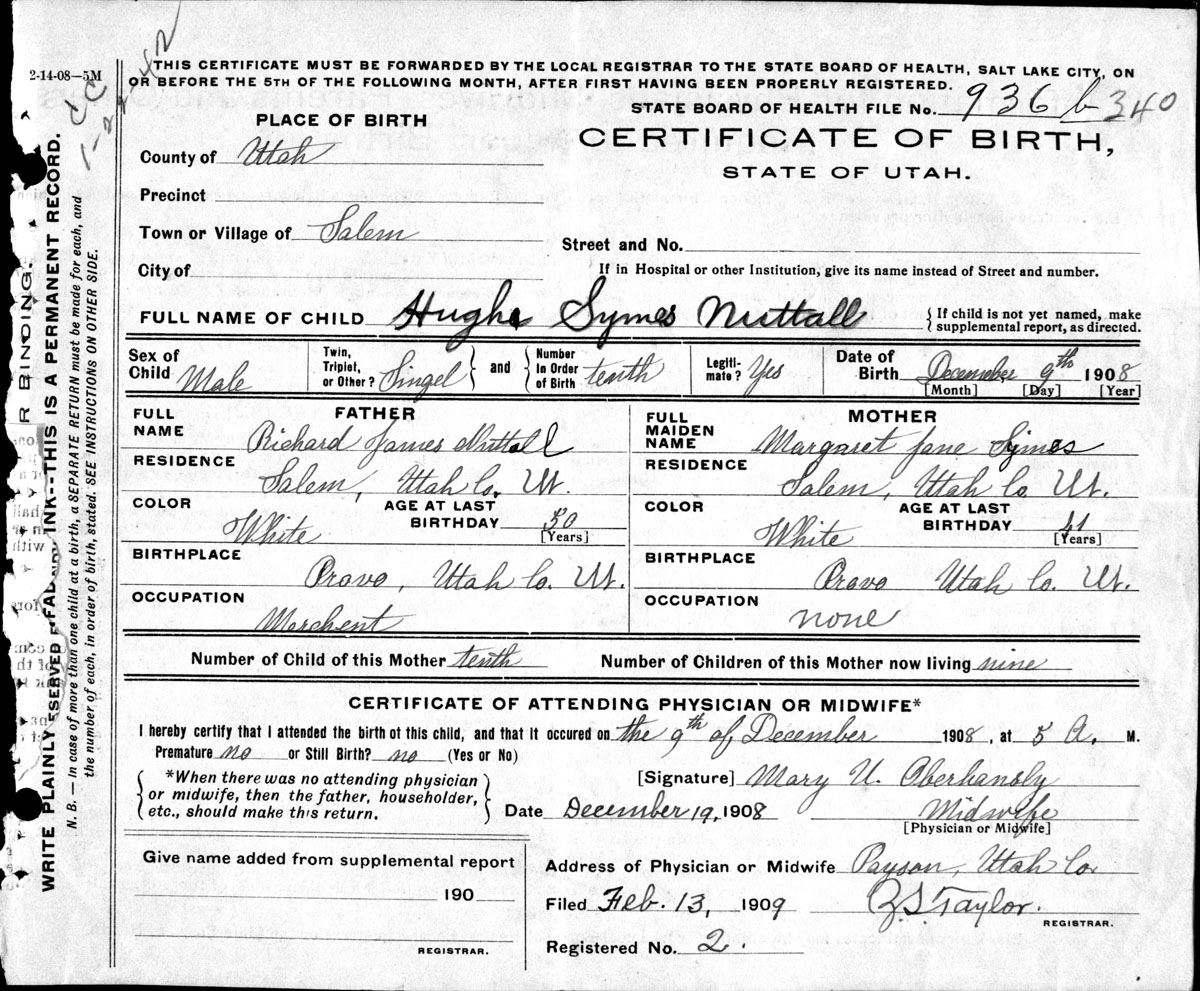 2-14-08—5M
THIS CERTIFICATE MUST BE FORWARDED BY THE LOCAL REGISTRAR TO THE STATE BOARD OF HEALTH, SALT LAKE CITY, ON
OR BEFORE THE 5TH OF THE FOLLOWING MONTH, AFTER FIRST HAVING BEEN PROPERLY REGISTERED.
STATE BOARD OF HEALTH FILE No. 936 b-340
PLACE OF BIRTH
CERTIFICATE OF BIRTH,
STATE OF UTAH.
County of Utah
Precinct
Town or Village of Salem
Street and No.
City of
If in Hospital or other Institution, give its name instead of Street and number.
FULL NAME OF CHILD Hugh Symes Nuttall { If child is not yet named, make
supplemental report, as directed.
Sex of Child Male Twin, Triplet, or Other? Singel } and { Number In Order of Birth tenth Legiti- mate? Yes Date of Birth December 9th 1908
[Month] [Day] [Year]
FATHER MOTHER
FULL NAME Richard James Nuttall FULL MAIDEN NAME Margaret Jane Symes
RESIDENCE Salem, Utah Co. Ut. RESIDENCE Salem, Utah Co Ut.
COLOR White AGE AT LAST BIRTHDAY 50 [Years] COLOR White AGE AT LAST BIRTHDAY 41 [Years]
BIRTHPLACE Provo, Utah Co. Ut. BIRTHPLACE Provo Utah Co. Ut.
OCCUPATION Merchent OCCUPATION none
Number of Child of this Mother tenth Number of Children of this Mother now living nine
CERTIFICATE OF ATTENDING PHYSICIAN OR MIDWIFE*
I hereby certify that I attended the birth of this child, and that it occured on the 9th of December 1908, at 5 A. M.
Premature no or Still Birth? no (Yes or No)
{ *When there was no attending physician
or midwife, then the father, householder,
etc., should make this return. }
[Signature] Mary U. Oberhansly
Date December 19, 1908 Midwife
[Physician or Midwife]
Give name added from supplemental report
190
REGISTRAR.
Address of Physician or Midwife Payson, Utah Co.
Filed Feb. 13, 1909 Taylor.
REGISTRAR.
Registered No. 2.
R BINDING.
WRITE PLAINLY INK---THIS IS A PERMANENT RECORD.
N. B. — In case of more than one child at a birth, a SEPARATE RETURN must be made for each, and
the number of each, in order of birth, stated. SEE INSTRUCTIONS ON OTHER SIDE.